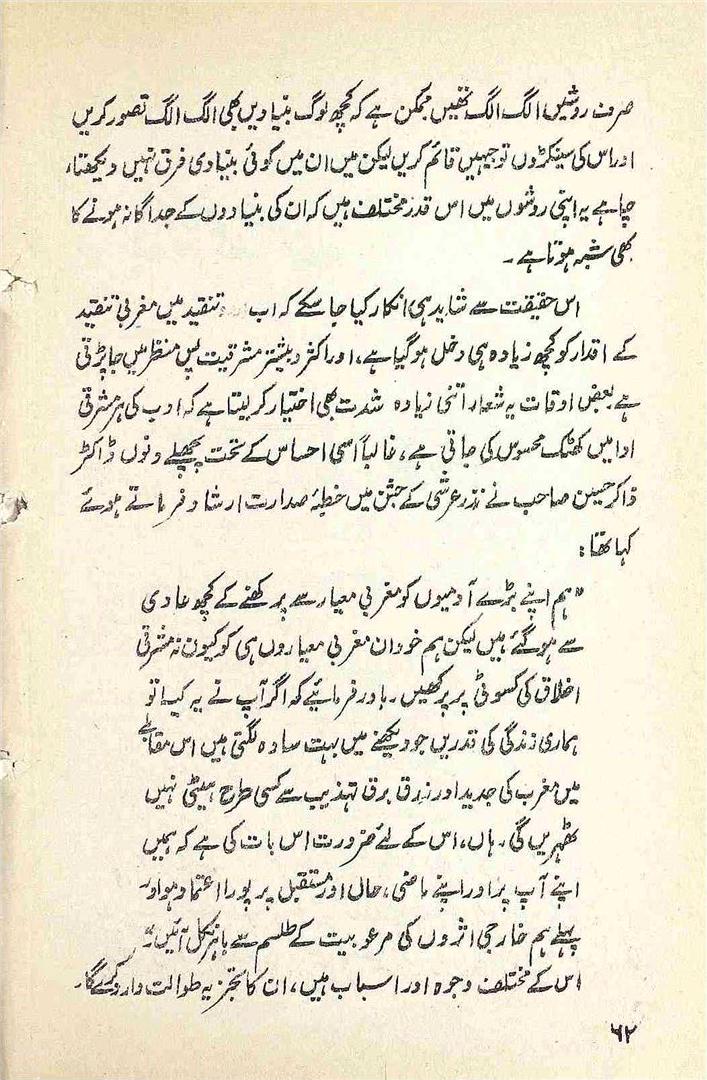 صرف روشیں الگ الگ تھیں ممکن ہے کہ کچھ لوگ بنیادیں بھی الگ الگ تصور کریں
اور اس کی سینکڑوں توجیہیں قائم کریں لیکن میں ان میں کوئی بنیادی فرق نہیں دیکھتا،
چاہے یہ اپنی روشوں میں اس قدر مختلف ہیں کہ ان کی بنیادوں کے جداگانہ ہونے کا
بھی شبہ ہوتا ہے۔
اس حقیقت سے شاید ہی انکار کیا جا سکے کہ اب تنقید میں مغربی تنقید
کے اقدار کو کچھ زیادہ ہی دخل ہو گیا ہے، اور اکثر و بیشتر مشرقیت پس منظر میں جا پڑتی
ہے بعض اوقات یہ شعار اتنی زیادہ شدت بھی اختیار کر لیتا ہے کہ ادب کی ہر مشرقی
ادا میں کھٹک محسوس کی جاتی ہے، غالباً اسی احساس کے تحت پچھلے دنوں ڈاکٹر
ذاکر حسین صاحب نے نذر عرشی کے جشن میں خطبۂ صدارت ارشاد فرماتے ہوئے
کہا تھا:
"ہم اپنے بڑے آدمیوں کو مغربی معیار سے پرکھنے کے کچھ عادی
سے ہو گئے ہیں لیکن ہم خود ان مغربی معیاروں ہی کو کیوں نہ مشرقی
اخلاق کی کسوٹی پر پرکھیں۔ باور فرمائیے کہ اگر آپ نے یہ کیا تو
ہماری زندگی کی قدریں جو دیکھنے میں بہت سادہ لگتی ہیں اس مقابلے
میں مغرب کی جدید اور زرق برق تہذیب سے کسی طرح ہیٹی نہیں
ٹھہریں گی۔ ہاں، اس کے لئے ضرورت اس بات کی ہے کہ ہمیں
اپنے آپ پر اور اپنے ماضی، حال اور مستقبل پر پورا اعتماد ہو اور
پہلے ہم خارجی اثروں کی مرعوبیت کے طلسم سے باہر نکل آئیں۔"
اس کے مختلف وجوہ اور اسباب ہیں، ان کا تجزیہ طوالت وارد کرے گا۔
۶۲